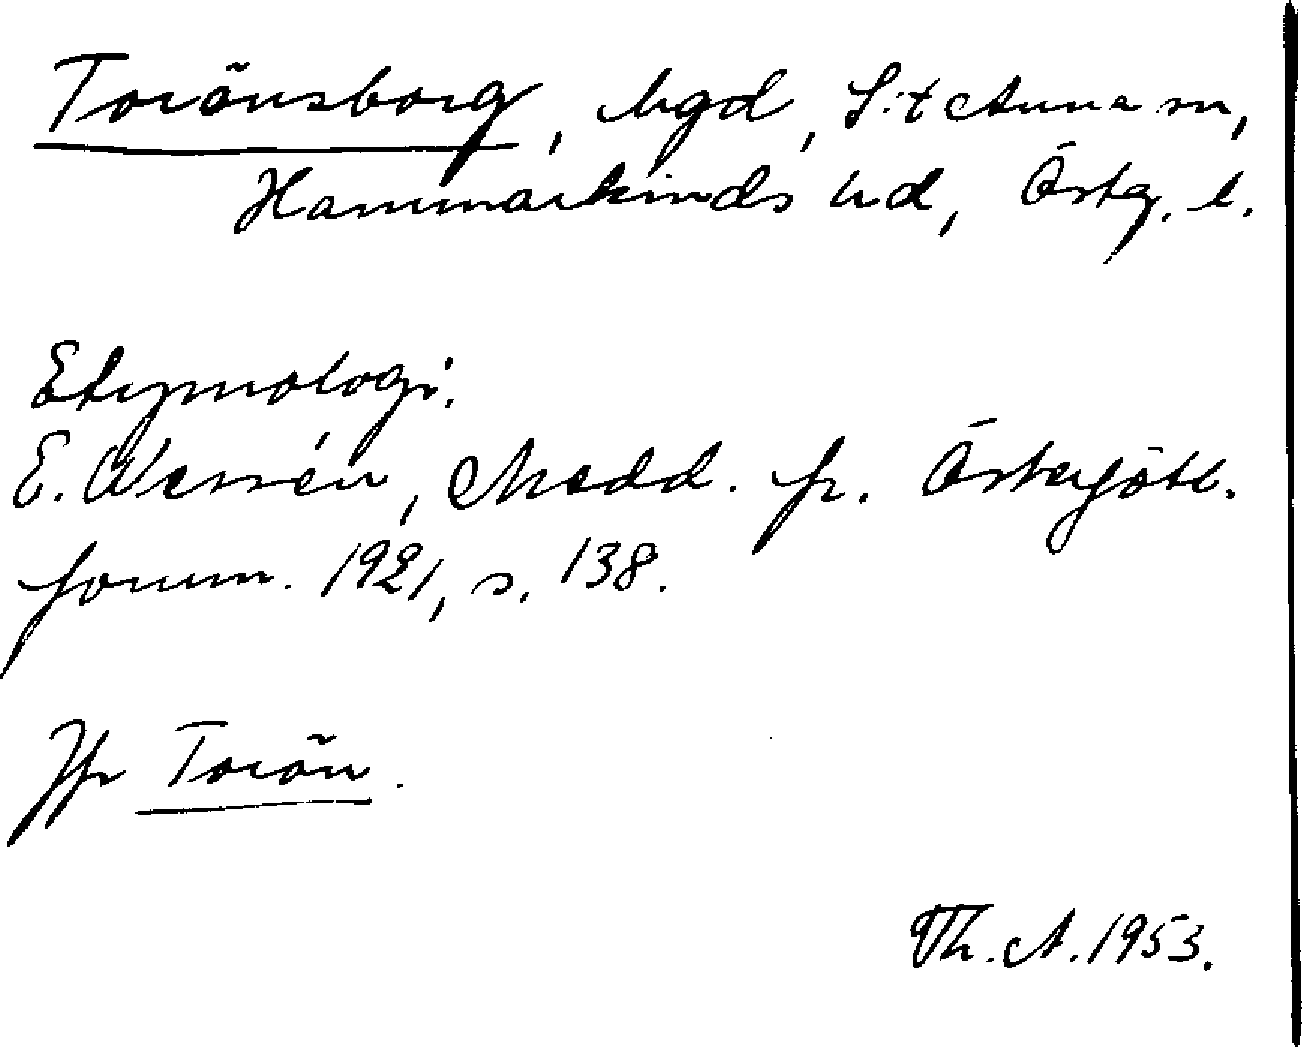 Torönsborg, hgd, S:t Anna sn,
Hammarkinds hd, Östg. l.
Etymologi.
E. Wessén, Medd. fr. Östergötl.
fornm. 1921, s. 138.
Jfr Torön.
Th. A. 1953.